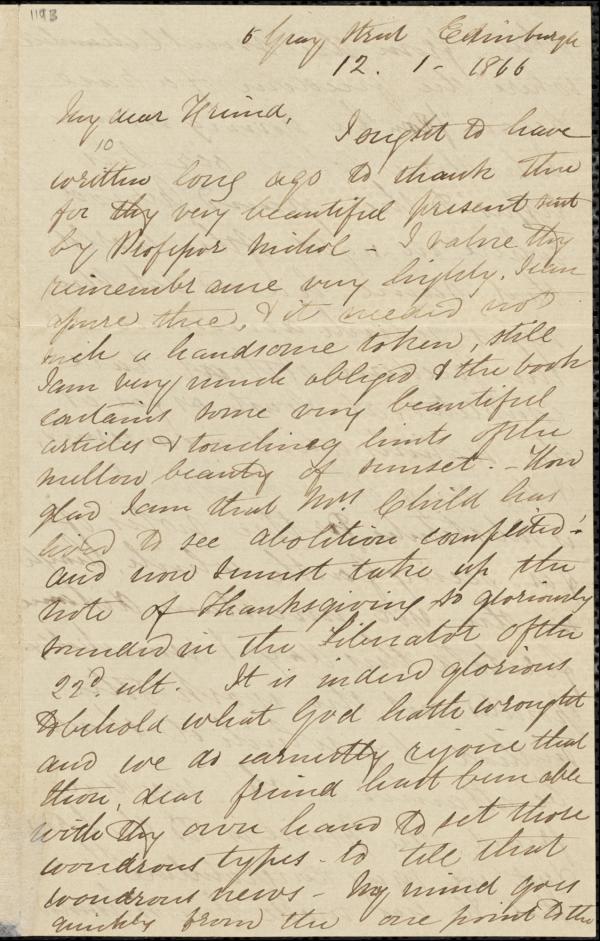 1193
5 Gray Street Edinburgh
12. 1 - 1866
My dear Friend,
I ought to have
written long ago to thank thee
for thy very beautiful present sent
by Professor Nichol - I value thy
remembrance very highly, I can
assure thee, & it needed not
such a handsome token, still
I am very much obliged & the book
contains some very beautiful
articles & touching hints of the
mellow beauty of sunset. - How
glad I am that Mrs. Child has
lived to see abolition completed!
and now I must take up the
note of Thanksgiving so gloriously
sounded in the Liberator of the
22d. ult. It is indeed glorious
to behold what God hath wrought
and we do earnestly rejoice that
thou, dear friend hast been able
with thy own hand to set those
wondrous types - to tell that
wondrous news - My mind goes
quickly from the one point to the